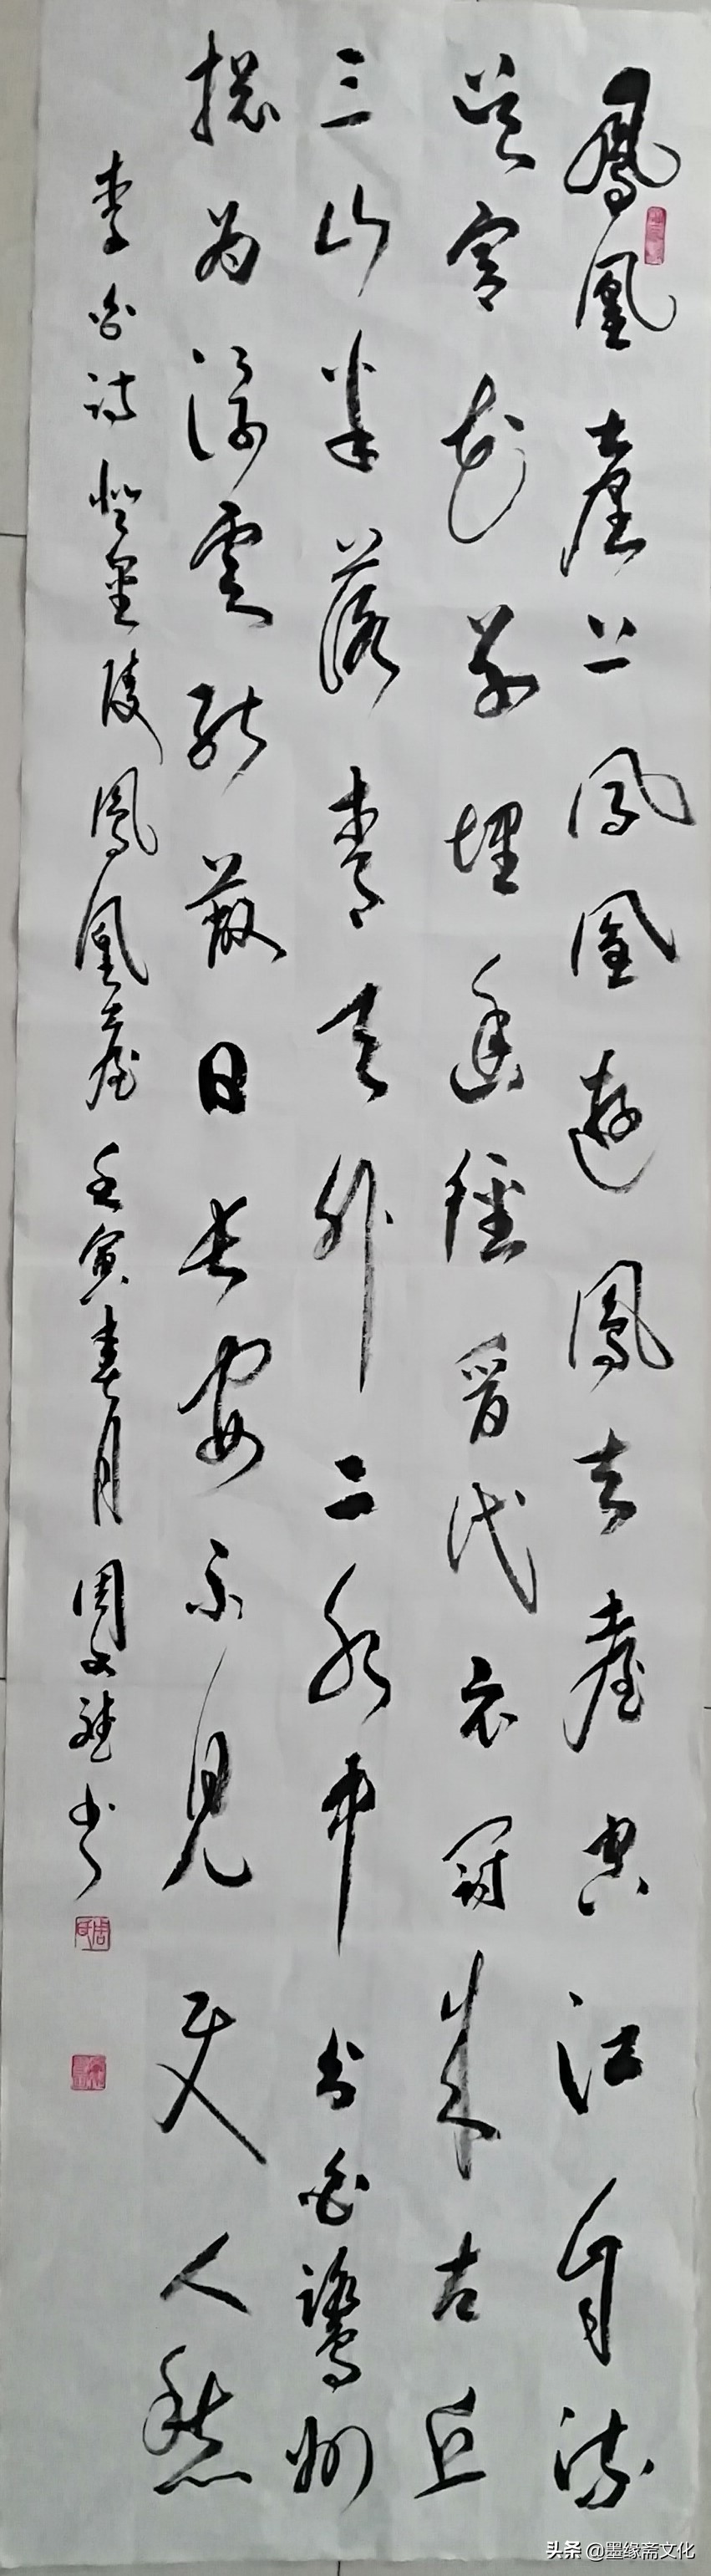 鳳凰臺上鳳凰遊鳳去臺空江自流
吳宮花草埋幽徑晉代衣冠成古丘
三山半落青天外二水中分白鷺洲
總為浮雲能蔽日長安不見使人愁
李白詩登金陵鳳凰臺壬寅春月周文雄书
头条 @墨缘斋文化